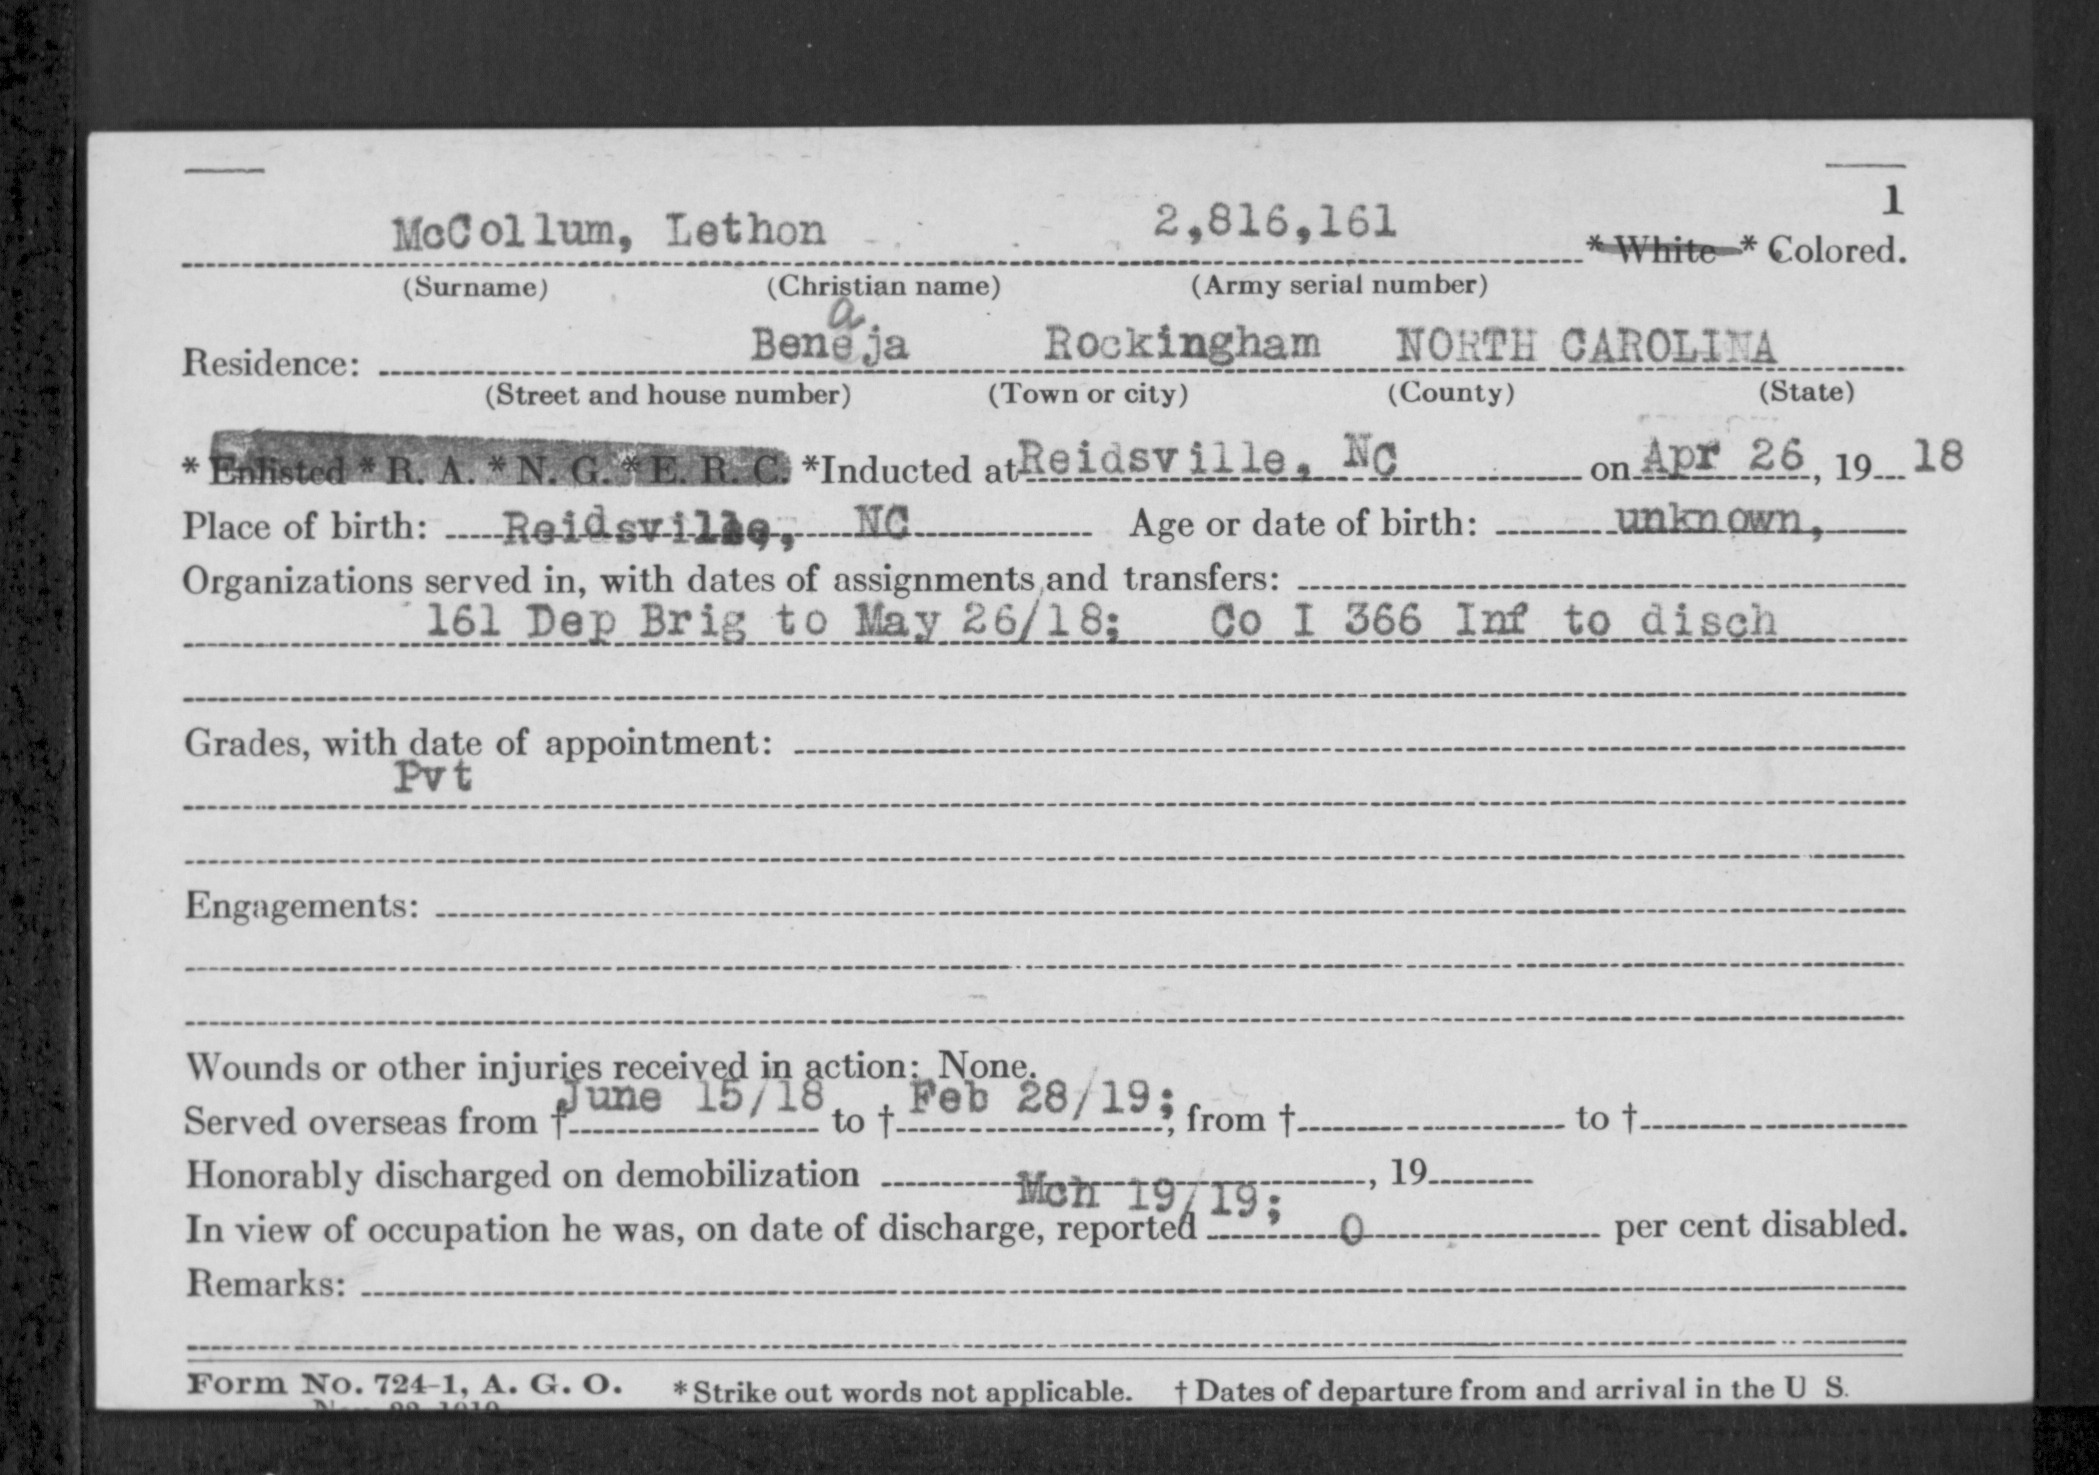 1
McCollum, Lethon 2,816,161 * White * Colored.
(Surname) (Christian name) (Army serial number)
a
Residence: Beneja Rockingham NORTH CAROLINA
(Street and house number) (Town or city) (County) (State)
* Enlisted * R. A. * N. G. * E. R. C. *Inducted at Reidsville, NC on Apr 26, 19 18
Place of birth: Reidsville, NC Age or date of birth: unknown,
Organizations served in, with dates of assignments and transfers:
161 Dep Brig to May 26/18; Co I 366 Inf to disch
Grades, with date of appointment:
Pvt
Engagements:
Wounds or other injuries received in action: None.
Served overseas from † June 15/18 to † Feb 28/19; from † to †
Honorably discharged on demobilization Mch 19/19; , 19
In view of occupation he was, on date of discharge, reported 0 per cent disabled.
Remarks:
Form No. 724-1, A. G. O. * Strike out words not applicable. † Dates of departure from and arrival in the U S.